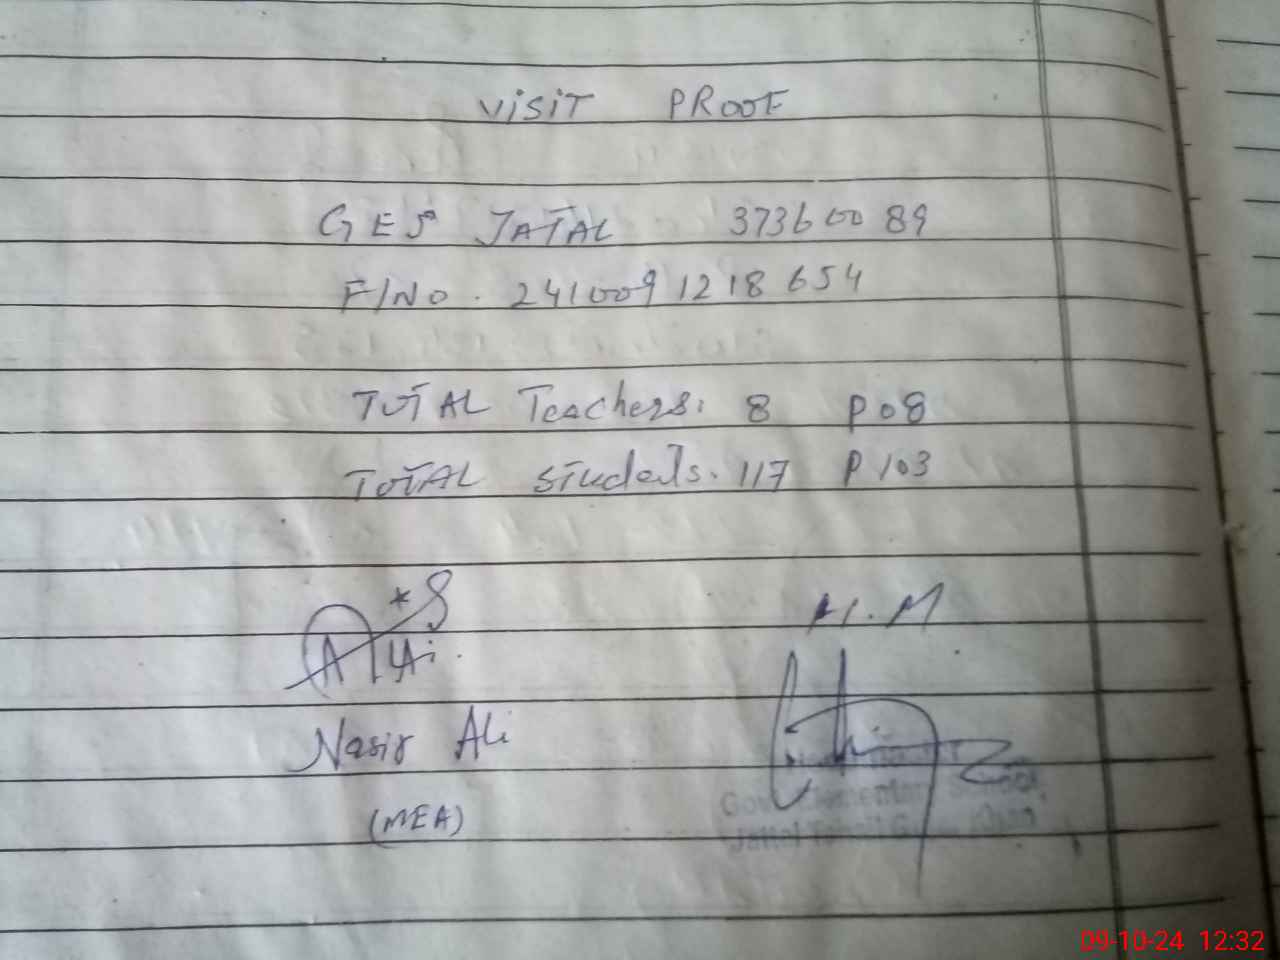 VISIT PROOF
GES JATAL 37360089
F/NO. 241009 1218654
TOTAL Teachers: 8 P 08
TOTAL Students. 117 P 103
H.M
Nasir Ali
(MEA)
Govt Elementary School
Jattal Tehsil Khan
09-10-24 12:32